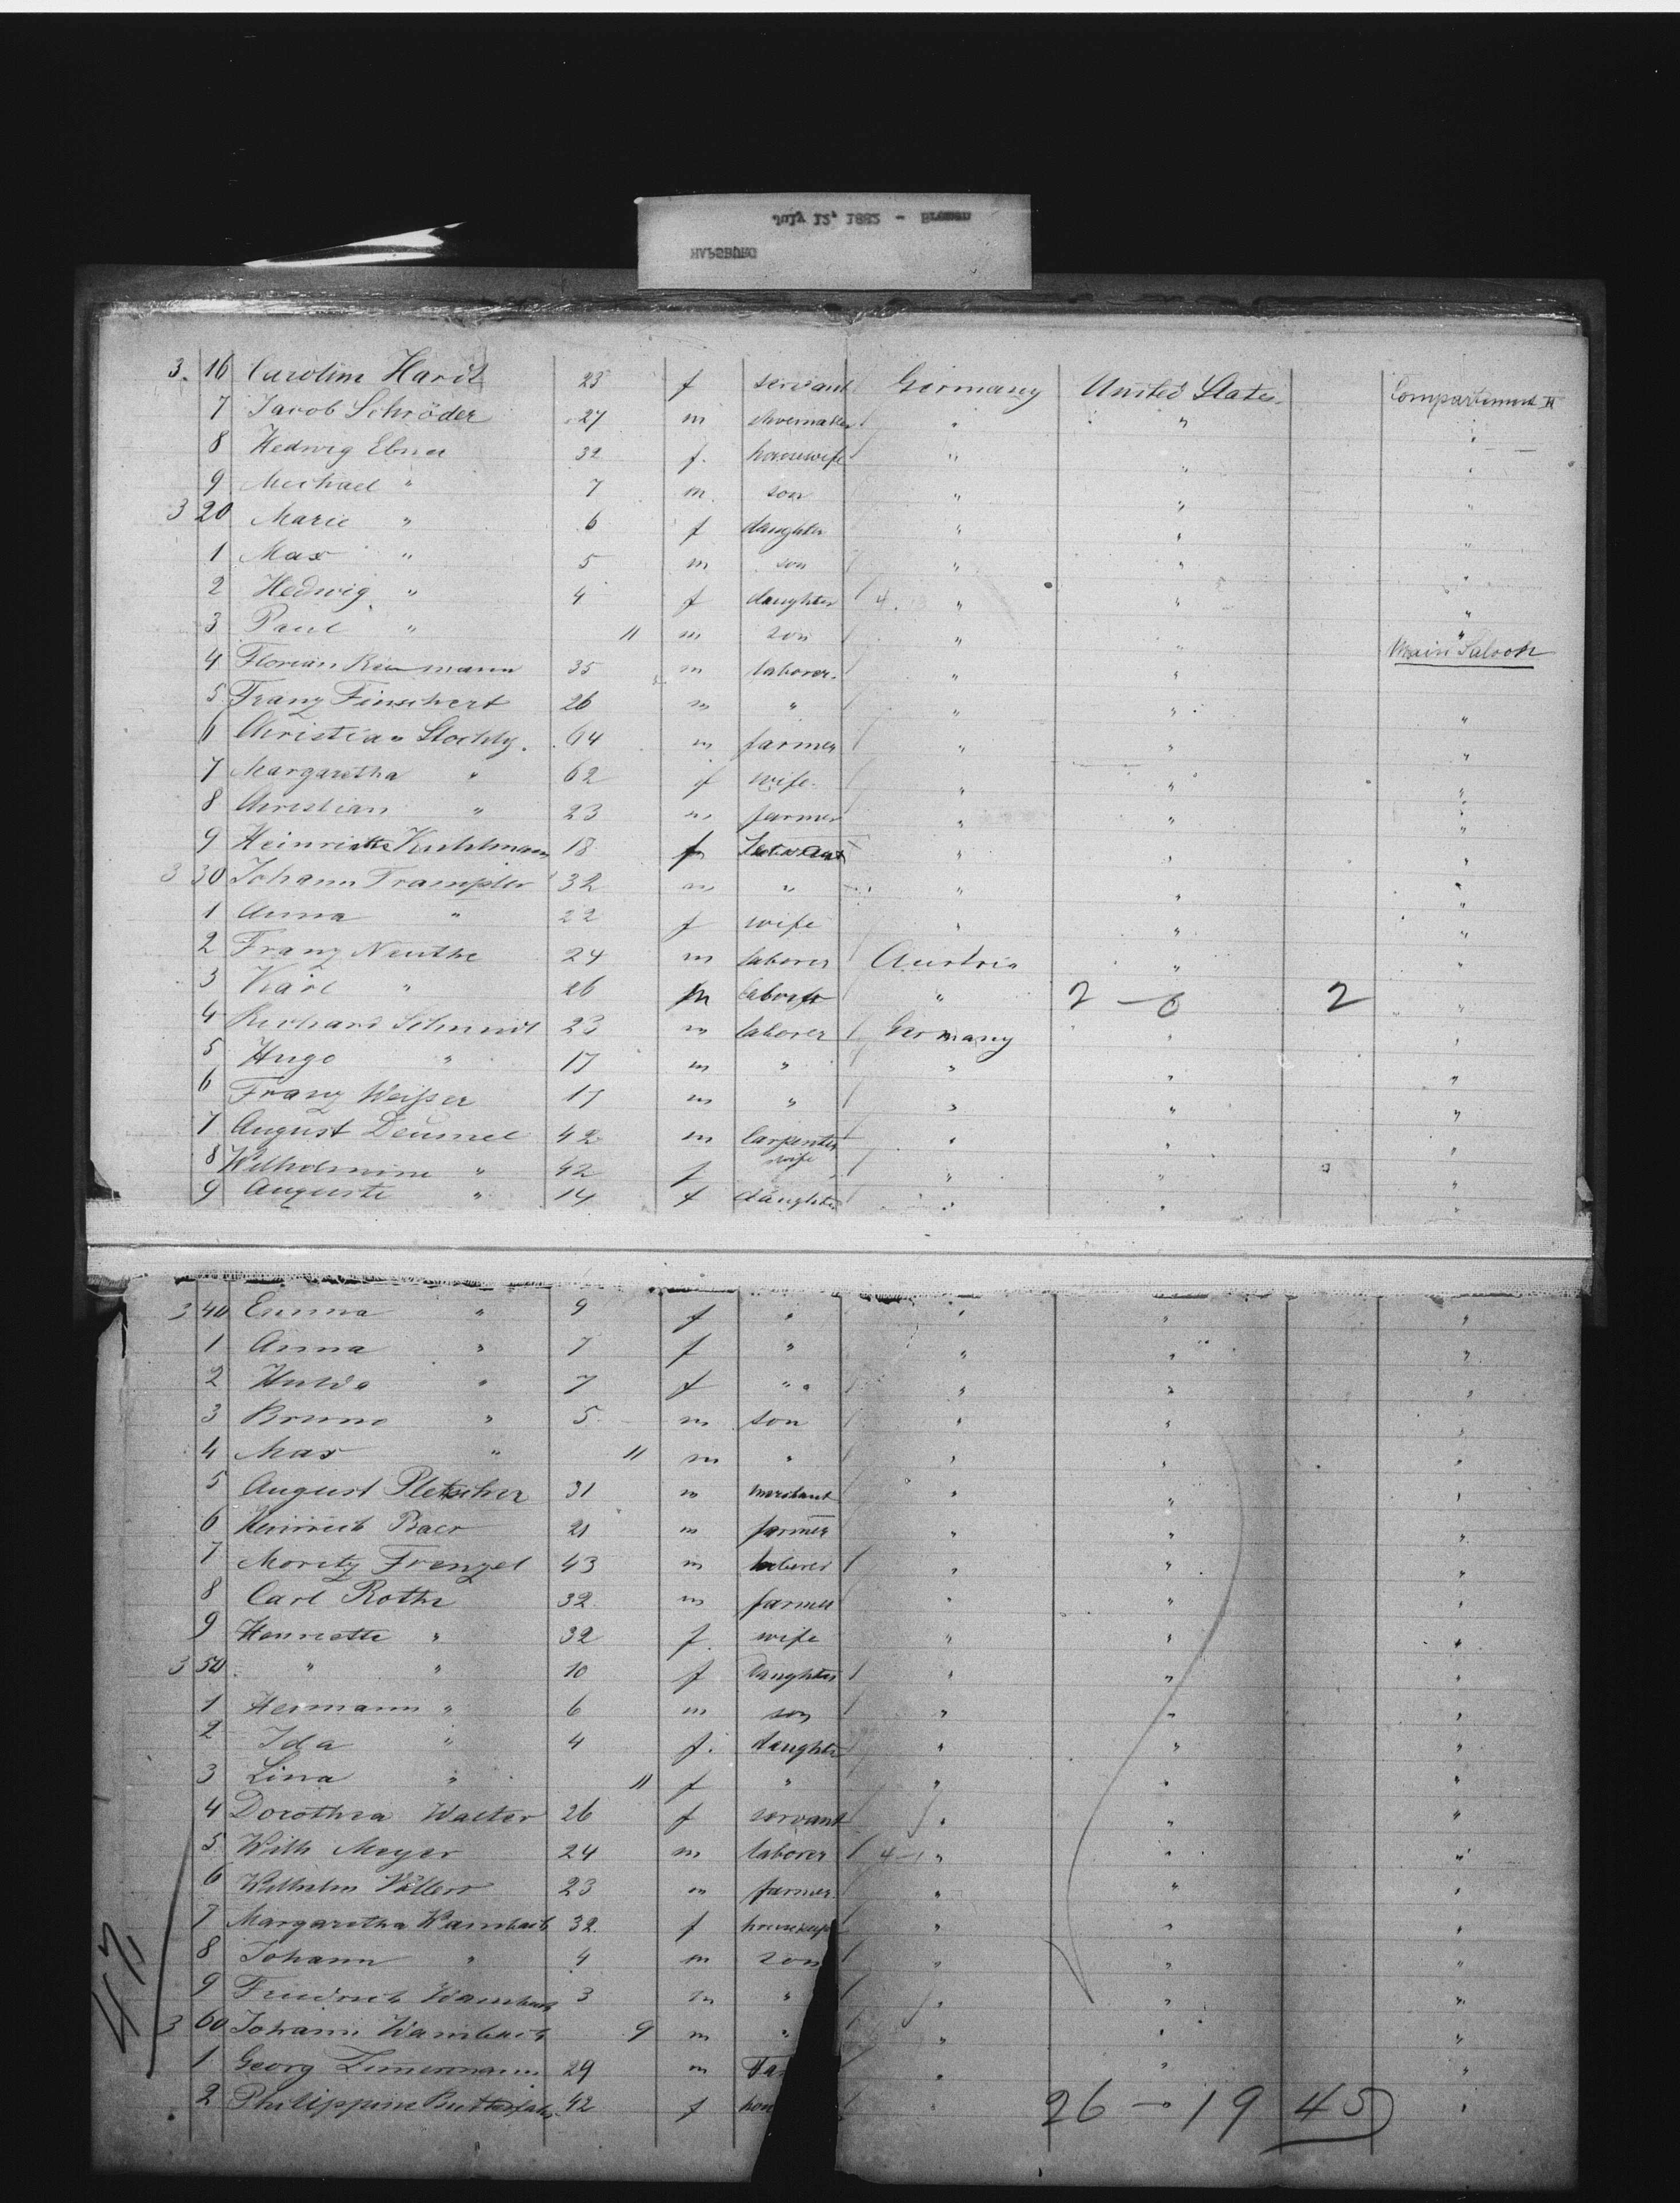 July 12, 1882 - Bremen
HAPSBURG
3. 16 Caroline Hardt 23 f servant Germany United States Compartement II
7 Jacob Schröder 27 m shoemaker " " "
8 Hedwig Ebner 32 f. housewife " " "
9 Michael " 7 m. son " " "
3 20 Marie " 6 f daughter " " "
1 Max " 5 m son " " "
2 Hedwig " 4 f daughter 4. " " "
3 Paul " 11 m son " " "
4 Florian 35 m laborer " " Main Saloon
5 Franz 26 m " " " "
6 Christian 64 m farmer " " "
7 Margaretha " 62 f wife " " "
8 Christian " 23 m farmer " " "
9 Heinriette Kuhlmann 18 f Servant " " "
3 30 Johann Trampler 32 m " " " "
1 Anna " 22 f wife " " "
2 Franz Neuthe 24 m laborer Austria " "
3 Karl " 26 m laborer " 2 - 0 2 "
4 Richard Schmidt 23 m laborer Germany " "
5 Hugo " 17 m " " " "
6 Franz Weißer 17 m " " " "
7 August Deumel 42 m Carpenter " " "
8 Wilhelmine " 42 f wife " " "
9 Auguste " 14 f daughter " " "
3 40 Emma " 9 f " " " "
1 Anna " 7 f " " " "
2 Hulda " 7 f " " " "
3 Bruno " 5 m son " " "
4 Max " 11 m " " " "
5 August Pletscher 31 m merchant " " "
6 Heinrich Baer 21 m farmer " " "
7 Moritz Frenzel 43 m laborer " " "
8 Carl Rothe 32 m farmer " " "
9 Henriette " 32 f. wife " " "
3 50 " " 10 f daughter " " "
1 Hermann " 6 m son " " "
2 Ida " 4 f. daughter " " "
3 Lina " 11 f " " " "
4 Dorothea Walter 26 f servant " " "
5 Wilh Meyer 24 m laborer 4-1 " " "
6 Wilhelm Völlers 23 m farmer " " "
7 Margaretha Wambach 32 f " " "
8 Johann " 4 m son " " "
9 Friedrich Wambach 3 m " " " "
3 60 Johann Wambach 9 m " " " "
1 Georg Zimmermann 29 m Fa " " "
2 Philippine 42 f hou " 26 - 19 45 "
42